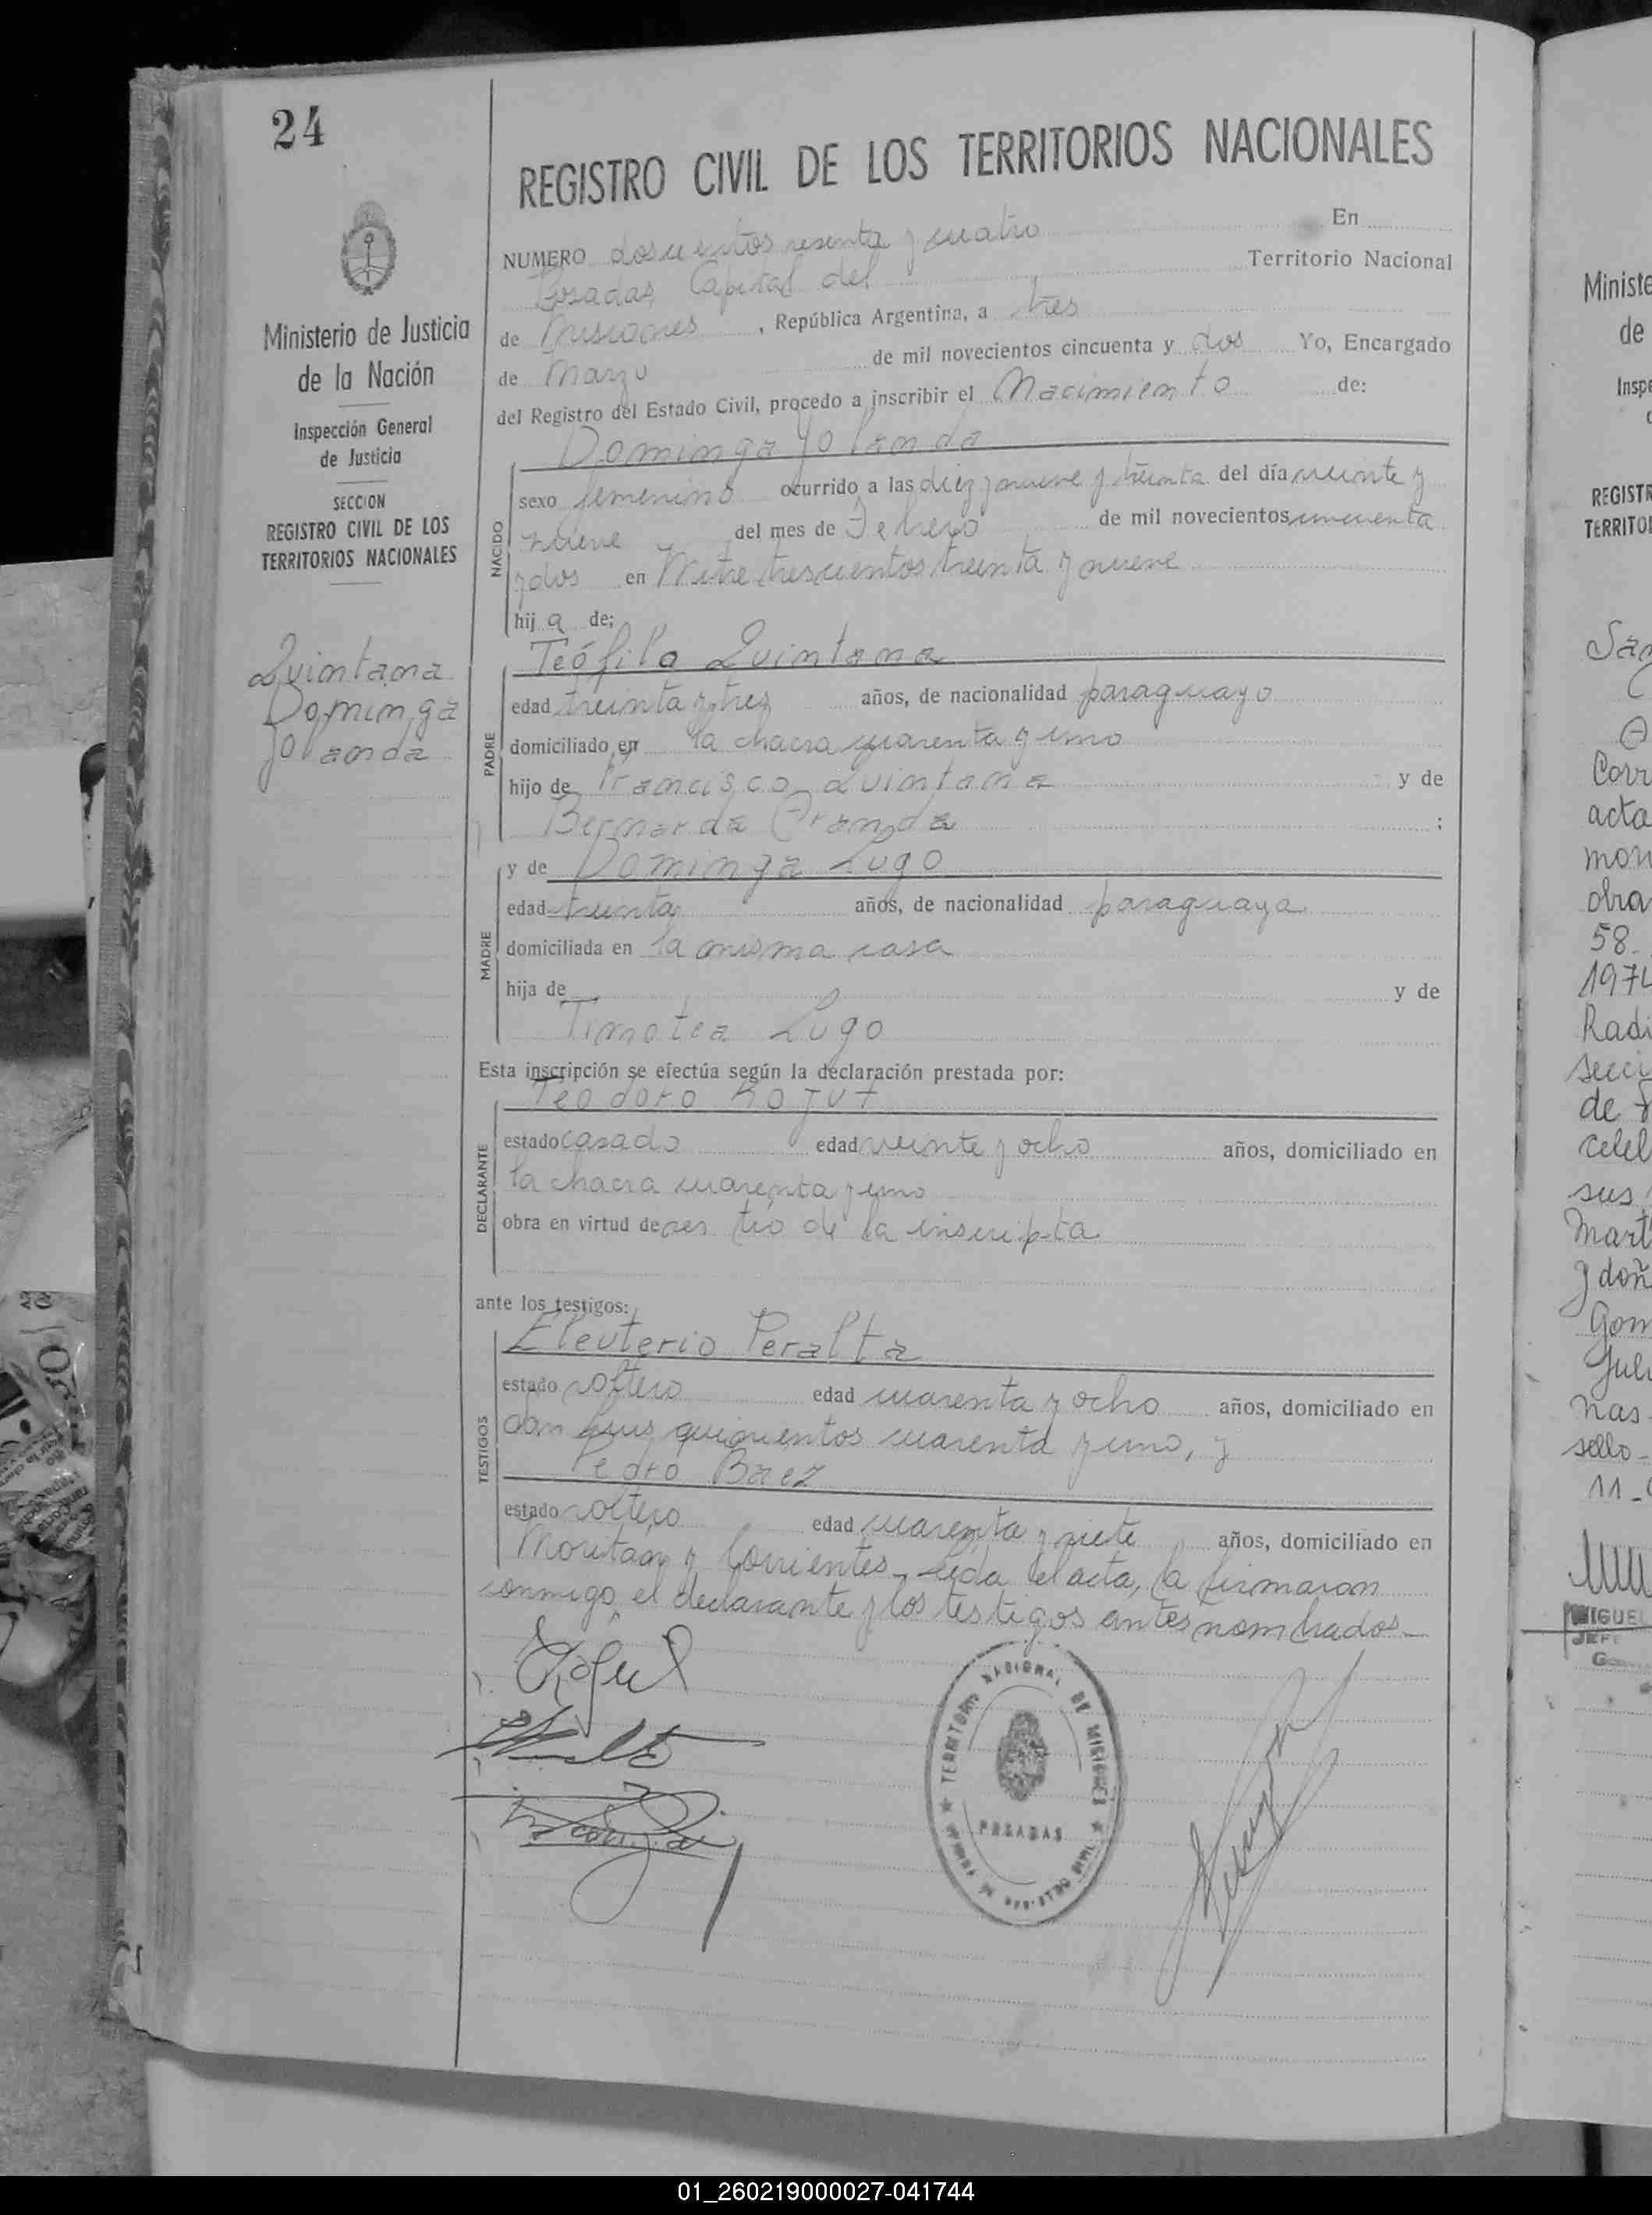 24
REGISTRO CIVIL DE LOS TERRITORIOS NACIONALES
Ministerio de Justicia
de la Nación
Inspección General
de Justicia
SECCION
REGISTRO CIVIL DE LOS
TERRITORIOS NACIONALES
Quintana
Dominga
Yolanda
NUMERO doscientos sesenta y cuatro En
Posadas, Capital del Territorio Nacional
de Misiones, República Argentina, a tres
de Marzo de mil novecientos cincuenta y dos Yo, Encargado
del Registro del Estado Civil, procedo a inscribir el Nacimiento de:
Dominga Yolanda
NACIDO
sexo femenino ocurrido a las diez y nueve y treinta del día veinte y
nueve del mes de Febrero de mil novecientos cincuenta
y dos en Mitre trescientos treinta y nueve
hija de;
PADRE
Teófilo Quintana
edad treinta y tres años, de nacionalidad paraguayo
domiciliado en la chacra cuarenta y uno
hijo de Francisco Quintana y de
Bernarda Aranda ;
MADRE
y de Dominga Lugo
edad treinta años, de nacionalidad paraguaya
domiciliada en la misma casa
hija de y de
Timotea Lugo
Esta inscripción se efectúa según la declaración prestada por:
DECLARANTE
Teodoro Kogut
estado casado edad veinte y ocho años, domiciliado en
la chacra cuarenta y uno
obra en virtud de ser tío de la inscripta
ante los testigos:
TESTIGOS
Eleuterio Peralta
estado soltero edad cuarenta y ocho años, domiciliado en
San Luis quinientos cuarenta y uno, y
Pedro Baez
estado soltero edad cuarenta y siete años, domiciliado en
y Corrientes - Leida el acta, la firmaron
conmigo el declarante y los testigos antes nombrados -
TERRITORIO NACIONAL DE MISIONES
POSADAS
Ministe
de
Inspe
REGISTR
TERRITOR
Corr
acta
mon
obra
58
1974
Radi
secc
de
celel
sus
Mart
y doñ
Gom
Juli
nas
sello -
11 -
MIGUEL
JEFE
01_260219000027-041744